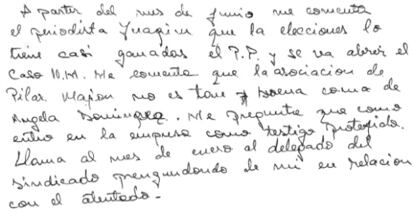 A partir del mes de Junio me comenta
el periodista Juaquin que la elecciones lo
tiene casi ganados el P.P y se va abrir el
Caso 11.M. Me comenta que la asociacion de
Pilar Majon no es tan y buena coma de
Angela Dominguez. Me pregunta que como
entro en la empresa como testigo protegido.
Llama al mes de enero al delegado del
Sindicado preugundondo de mi en relacion
con el atentado.-